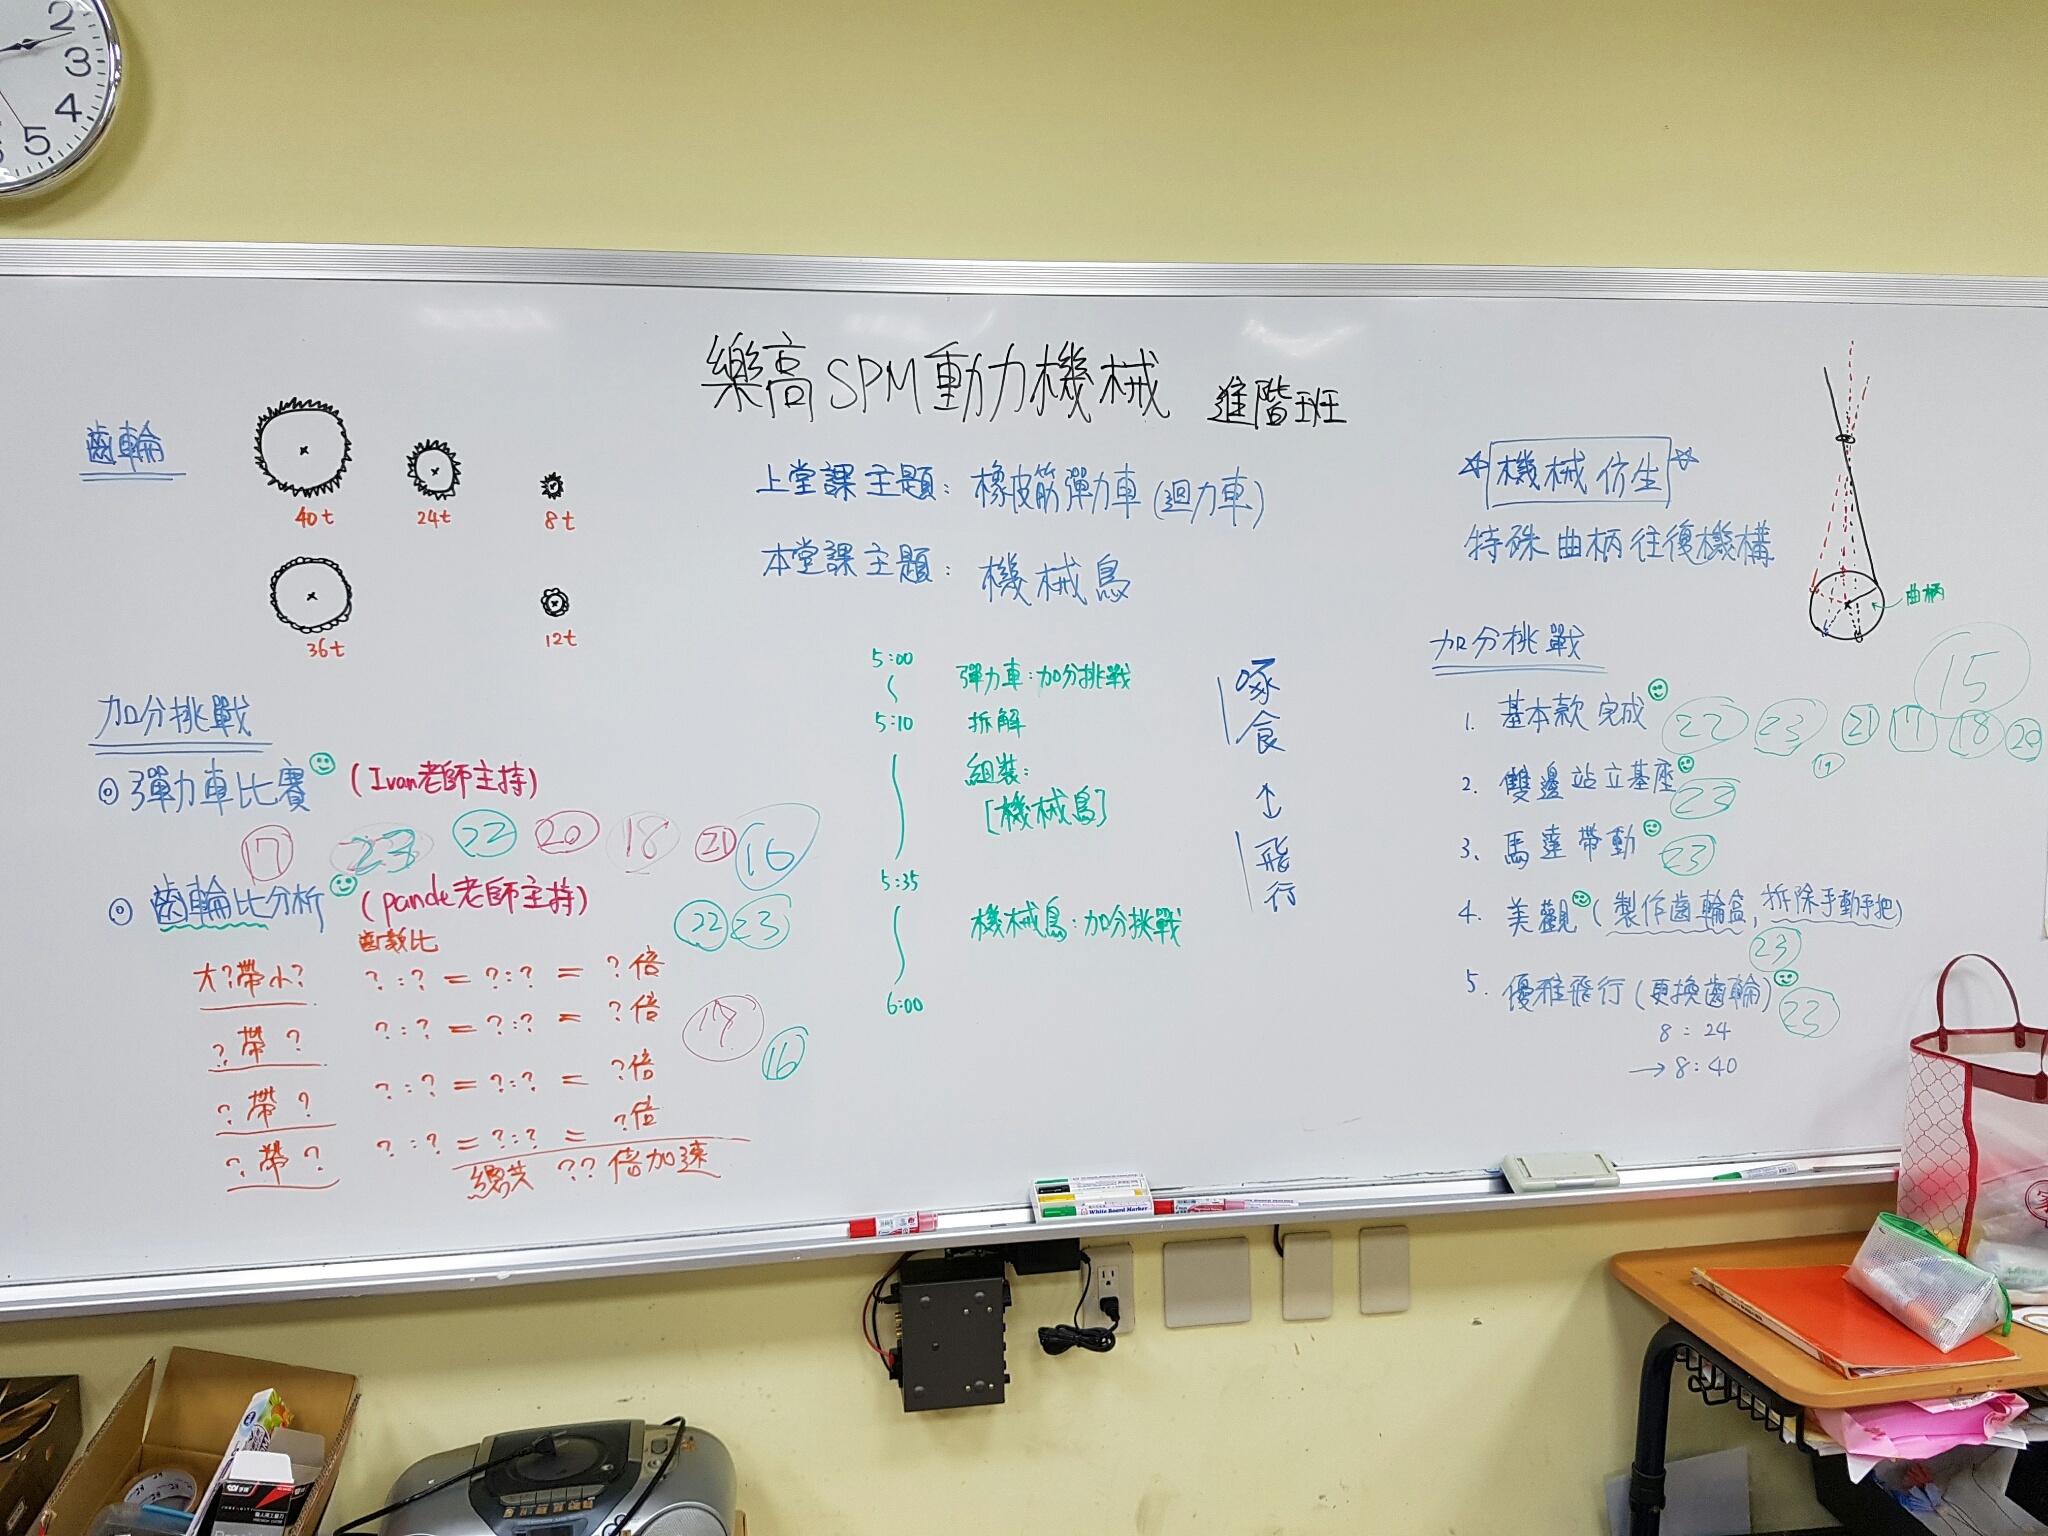 2
3
4
5
樂高SPM動力機械 進階班
齒輪
40t
24t
8t
36t
12t
加分挑戰
◎ 彈力車比賽 (Ivan老師主持)
17 23 22 20 18 21 16
◎ 齒輪比分析 (pande老師主持)
22 23
齒數比
大?帶小? ?:? = ?:? = ?倍
?帶? ?:? = ?:? = ?倍
17
16
?帶? ?:? = ?:? = ?倍
?帶? ?:? = ?:? = ?倍
總共 ??倍加速
上堂課主題: 橡皮筋彈力車 (迴力車)
本堂課主題: 機械鳥
5:00 彈力車:加分挑戰
5:10 拆解
組裝:
[機械鳥]
5:35
機械鳥:加分挑戰
6:00
啄食
↕
飛行
☆機械仿生☆
特殊曲柄往復機構
曲柄
加分挑戰
15
1. 基本款完成 22 23 21 17 18 20
19
2. 雙邊站立基座 23
3. 馬達帶動 23
4. 美觀 (製作齒輪盒, 拆除手動手把)
23
5. 優雅飛行 (更換齒輪) 23
8:24
→8:40
White Board Marker